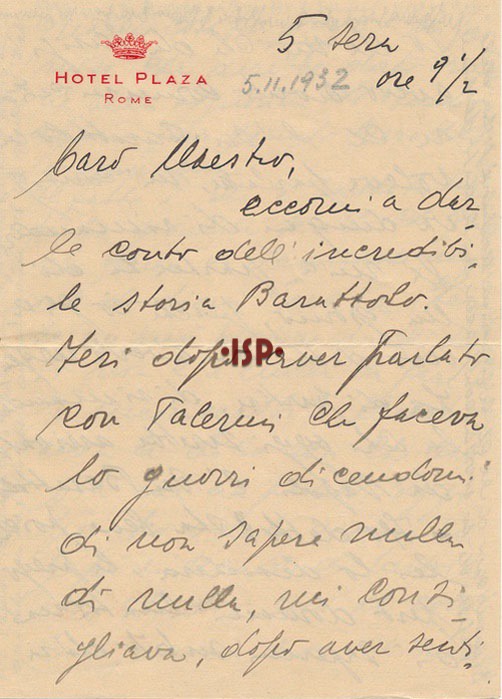 HOTEL PLAZA
ROME
5 sera
5.11.1932 ore 9 1/2
Caro Maestro,
eccomi a dar
le conto dell'incredibi-
le storia Barattolo.
Ieri dopo aver parlato
•ISP•
con Talermi che faceva
lo gnorri dicendomi
di non sapere nulla
di nulla, mi consi-
gliava, dopo aver senti-